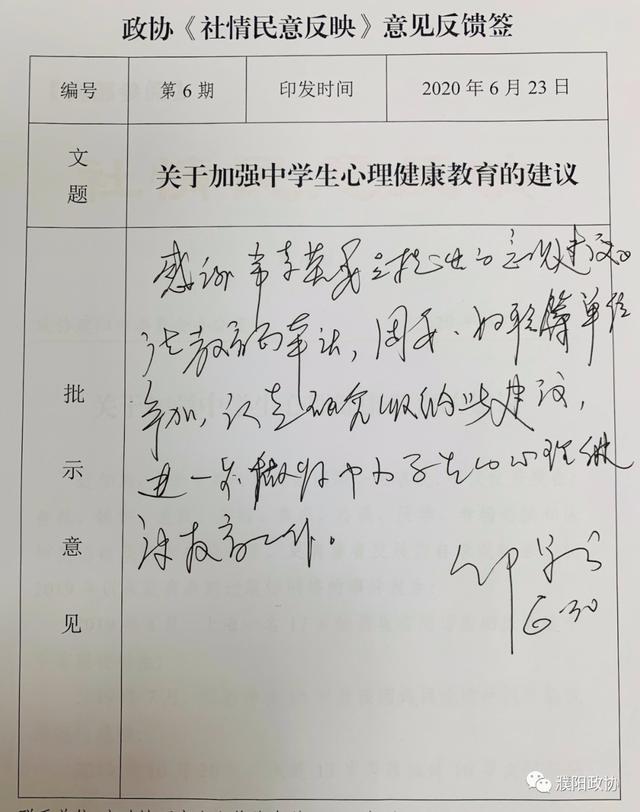 政协《社情民意反映》意见反馈签
编号 第6期 印发时间 2020年6月23日
文题 关于加强中学生心理健康教育的建议
批示意见
感谢 委提出的意见建议。
请教育局牵头，团委、妇联等单位
参加，认真研究吸纳此建议，
进一步做好中小学生的心理健
康教育工作。
6.30
濮阳政协